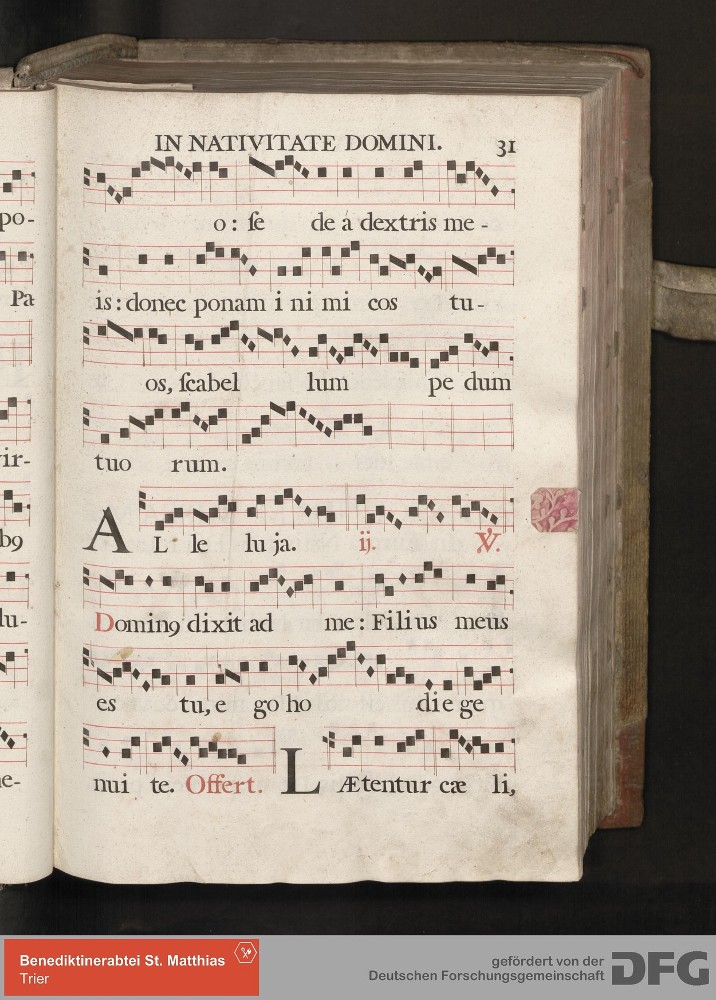 IN NATIVITATE DOMINI. 31
po-
o: ſe de a dextris me-
Pa
is: donec ponam i ni mi cos tu-
os, ſcabel lum pe dum
vir-
tuo rum.
b9
AL le lu ja. ij. ℣.
du-
Domin9 dixit ad me: Filius meus
es tu, e go ho di e ge
ne-
nui te. Offert. LÆtentur cæ li,
Benediktinerabtei St. Matthias
Trier
gefördert von der
Deutschen Forschungsgemeinschaft DFG